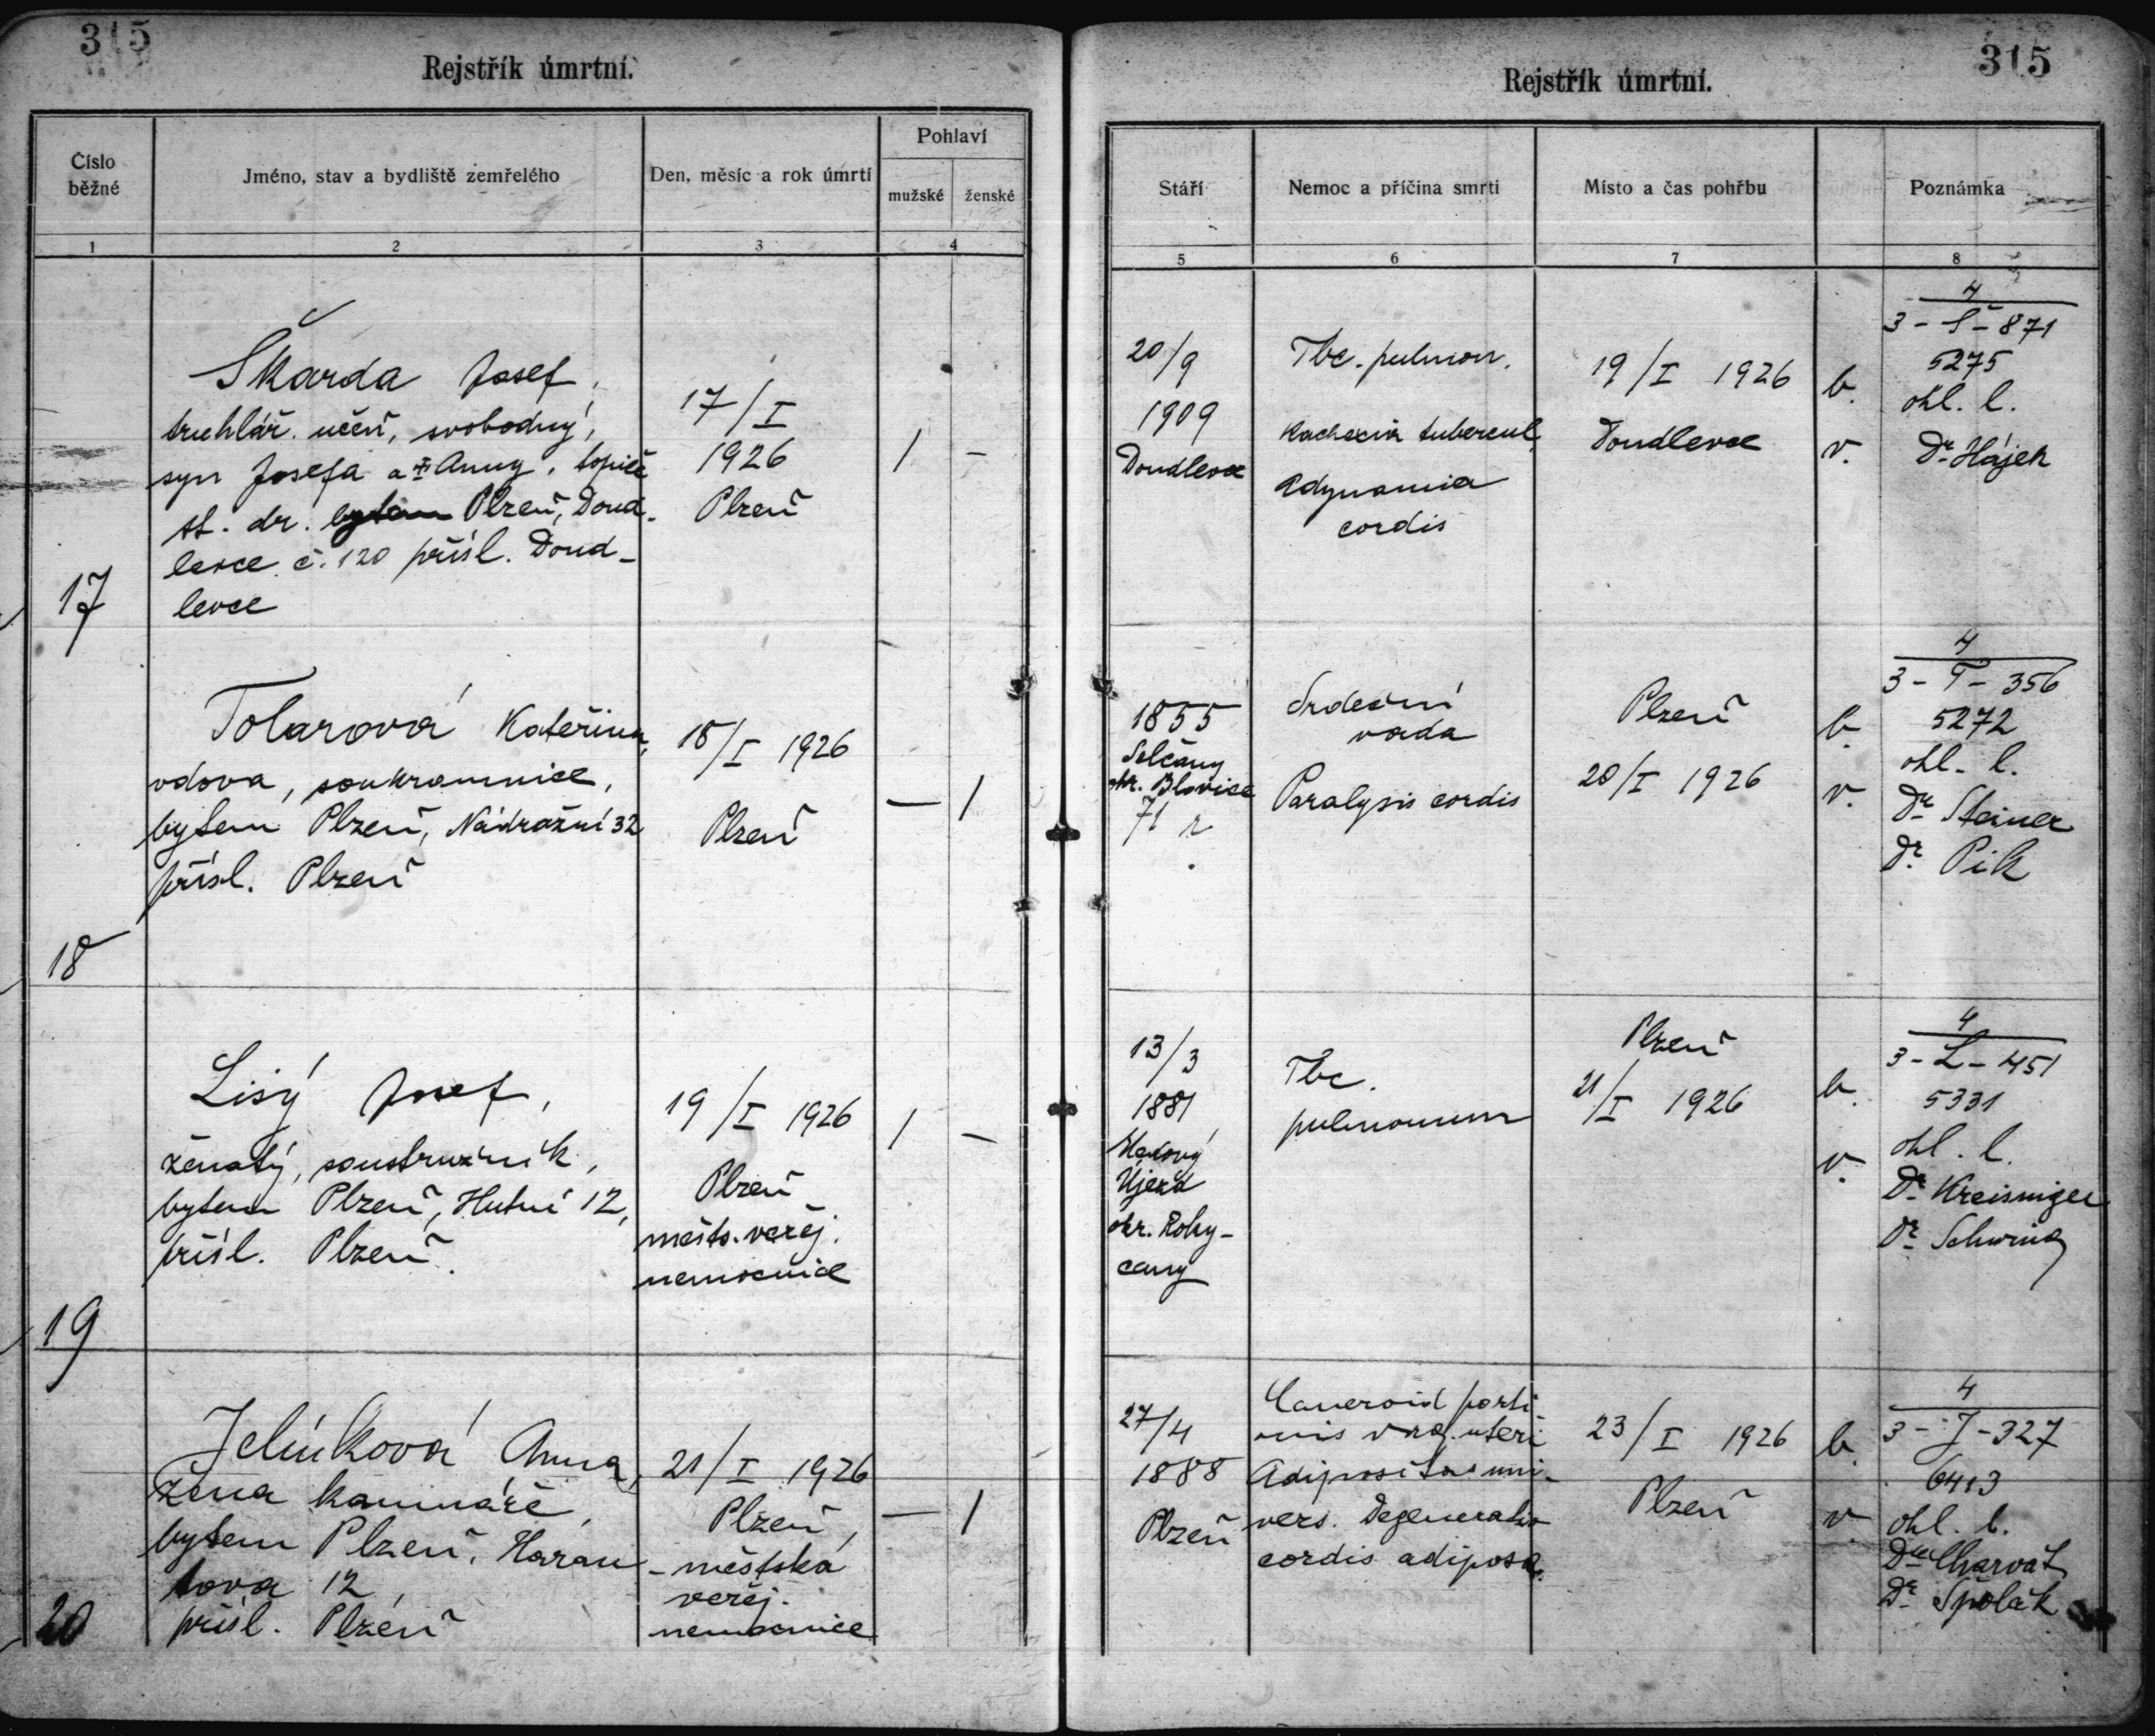 315
Rejstřík úmrtní.
Číslo běžné
Jméno, stav a bydliště zemřelého
Den, měsíc a rok úmrtí
Pohlaví
mužské
ženské
1
2
3
4
17
Škarda Josef,
truhlář. učeň, svobodný,
syn Josefa a Anny, topiče
st. dr. bytem Plzeň, Doud-
levce č. 120 přísl. Doud-
levce
17/I
1926
Plzeň
/
-
18
Tolarová Kateřina,
vdova, soukromnice,
bytem Plzeň, Nádražní 32
přísl. Plzeň
18/I 1926
Plzeň
-
/
19
Lisý Josef,
ženatý, soustružník,
bytem Plzeň, Hutní 12,
přísl. Plzeň.
19/I 1926
Plzeň
městs. veřej.
nemocnice
/
-
20
Jelínková Anna,
žena kamnáře,
bytem Plzeň, Haran-
tova 12,
přísl. Plzeň
21/I 1926
Plzeň,
městská
veřej.
nemocnice
-
/
315
Rejstřík úmrtní.
Stáří
Nemoc a příčina smrti
Místo a čas pohřbu
Poznámka
5
6
7
8
20/9
1909
Doudlevce
Tbc. pulmon.
Kachexia tubercul.
Adynamia
cordis
19/I 1926
Doudlevce
b.
v.
4
3-Š-871
5275
ohl. l.
Dr Hájek
1855
Selčany
okr. Blovice
71 r
Srdeční
vada
Paralysis cordis
Plzeň
20/I 1926
b.
v.
4
3-T-356
5272
ohl. l.
Dr Steiner
Dr Pik
13/3
1881
Medový
Újezd
okr. Roky-
cany
Tbc.
pulmonum
Plzeň
21/I 1926
b.
v.
4
3-L-451
5331
ohl. l.
Dr Kreisinger
Dr Schwing
27/4
1888
Plzeň
Cancroid porti
onis vag. uteri
Adipositas uni-
vers. Degeneratio
cordis adiposa.
23/I 1926
Plzeň
b.
v.
4
3-J-327
6413
ohl. l.
Dr Charvát
Dr Špolák